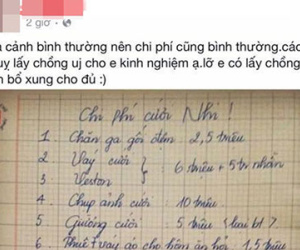 2 giờ ·
cảnh bình thường nên chi phí cũng bình thường.các
uỵ lấy chồng uị cho e kinh nghiệm ạ.lỡ e có lấy chồng
n bổ xung cho đủ :)
Chi phí cưới Nhi !
1 Chăn ga gối đệm 2,5 triệu
2 Váy cưới } 6 triệu + 5tr nhẫn
3 Veston
4 Chụp ảnh cưới 10 triệu
5 Giường cưới 5 triệu
6 Thuê váy áo cho hôm ăn hỏi 1,5 triệu